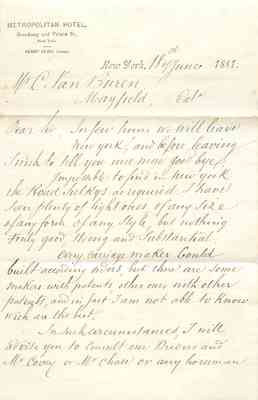 METROPOLITAN HOTEL,
Broadway and Prince St.,
New York
HENRY CLAIR, Lessee.
New York, 18th June 1881.
Mr C. Van Buren
Mayfield, Cal.
Dear Sir, In few hours we will leave
New York, and before leaving
I wish to tell you one more good bye
Impossible to find in New York
the Road Sulkys as required. I have
seen plenty of light ones of any size
of any form of any Style, but nothing
truly good, strong and substantial
Every carriage maker could
built according orders, but there are some
makers with patents others ones with other
patents, and in fact I am not able to know
wich are the best.
In such circumstances, I will
advise you to consult our Friend and
Mr or Mr Chase or any horseman